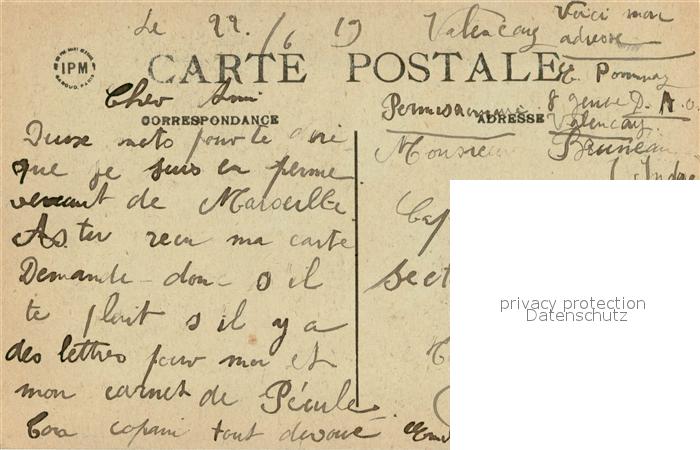 Le 22/6 19 Valencay
Voici mon
adresse
IPM
CARTE POSTALE
Cher Ami
Permissionnaire
8 genie D.A.O.
Valencay
CORRESPONDANCE
ADRESSE
Monsieur Bruneau
(Indre
Deux mots pour te dire
que je suis en perme
venant de Marseille.
As tu recu ma carte
Demande donc s il
te plait s il y a
des lettres pour moi et
mon carnet de Pécule
Ton copain tout dévoué
Sect
privacy protection
Datenschutz